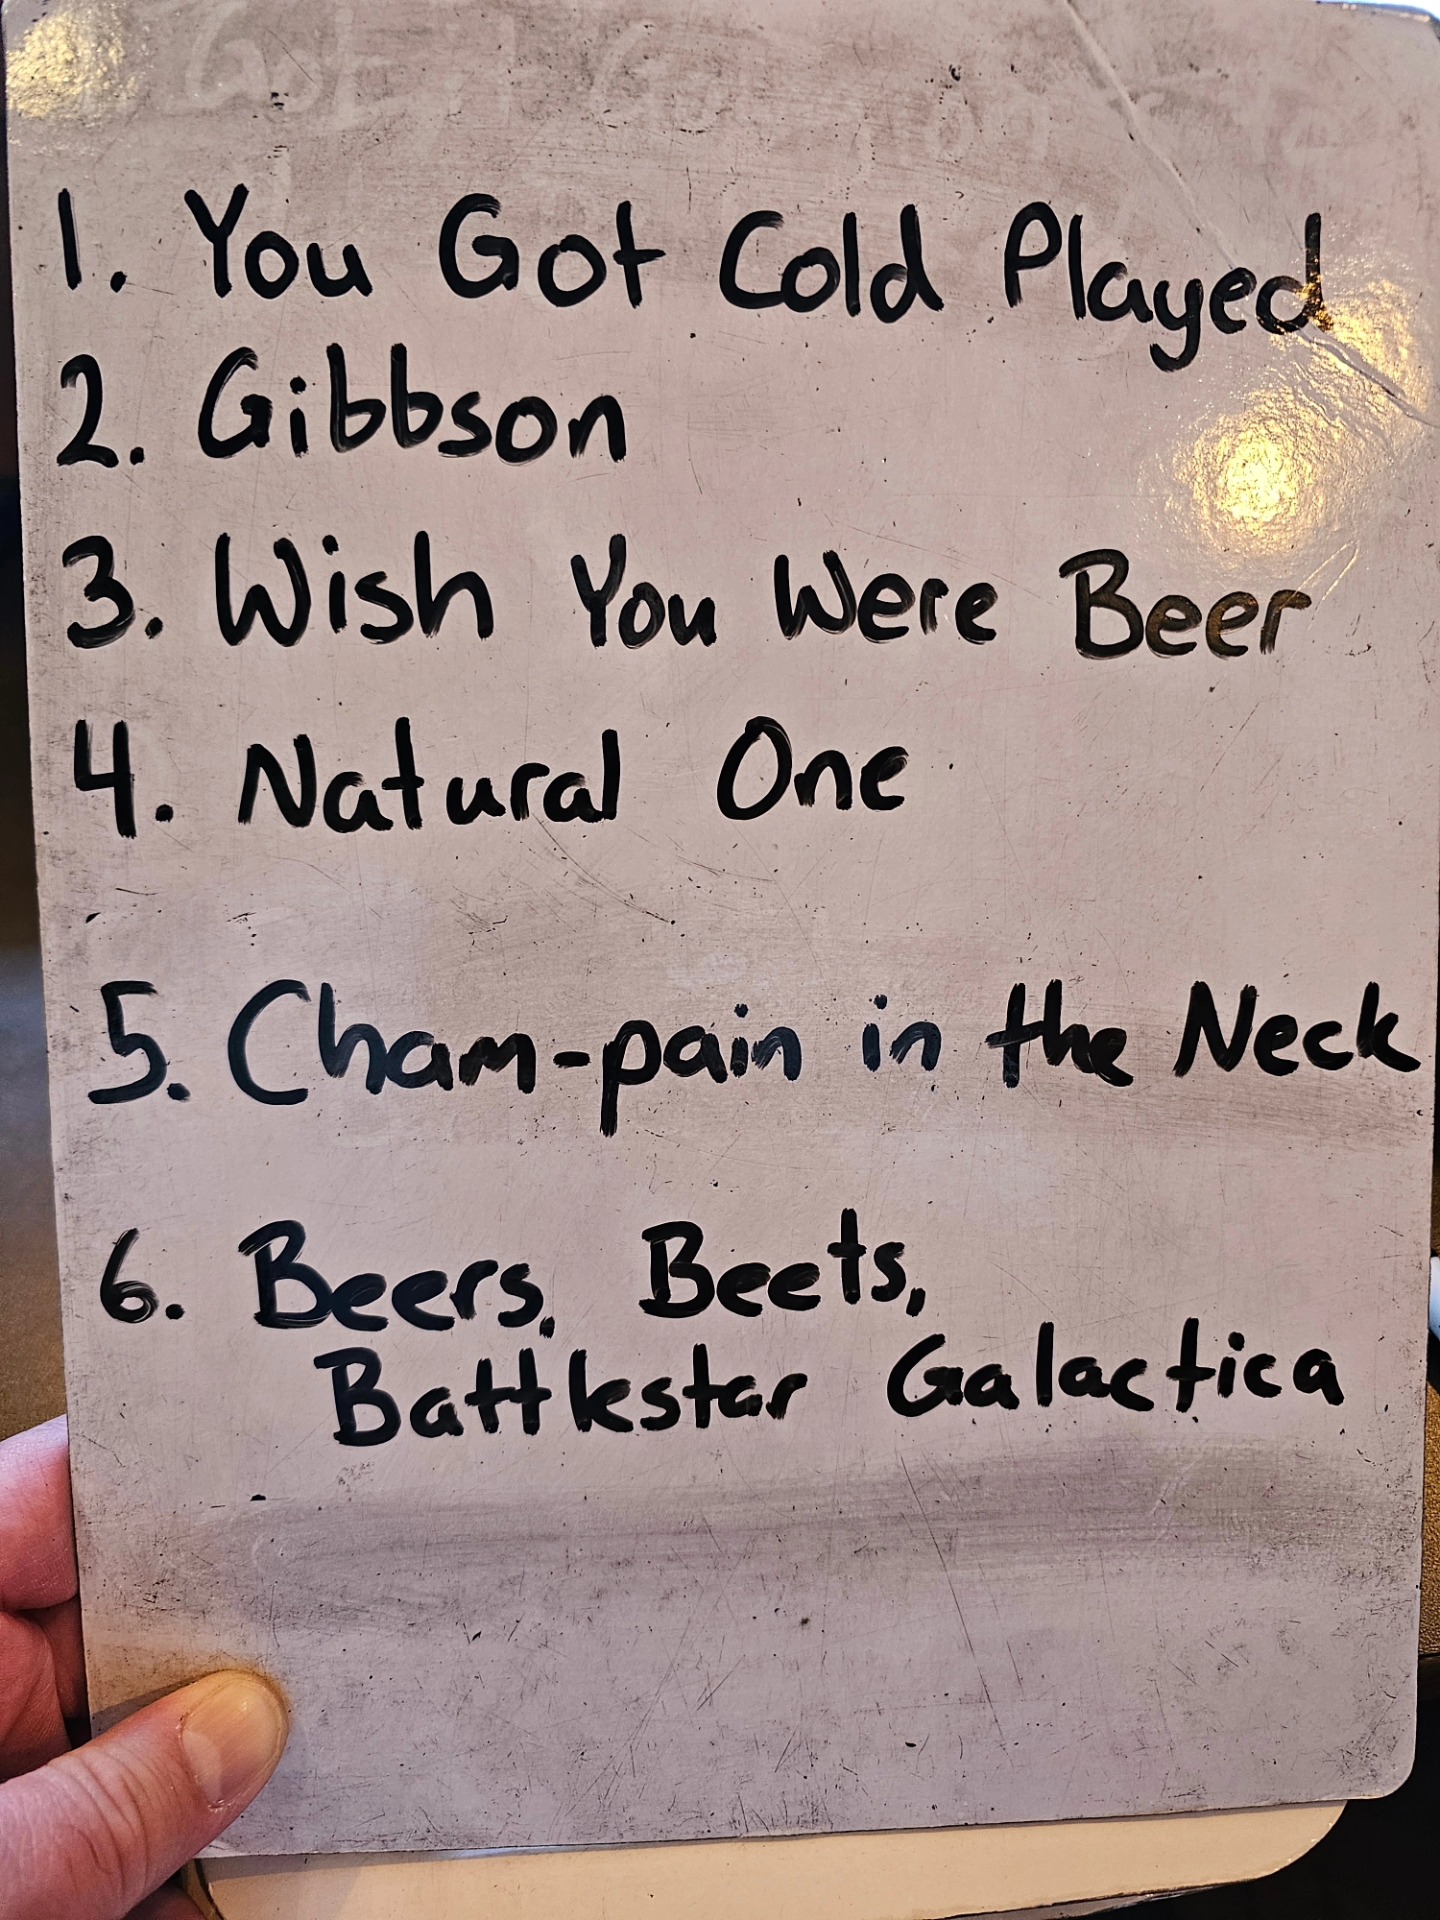 1. You Got Cold Played
2. Gibbson
3. Wish You Were Beer
4. Natural One
5. Cham-pain in the Neck
6. Beers, Beets,
Battlestar Galactica